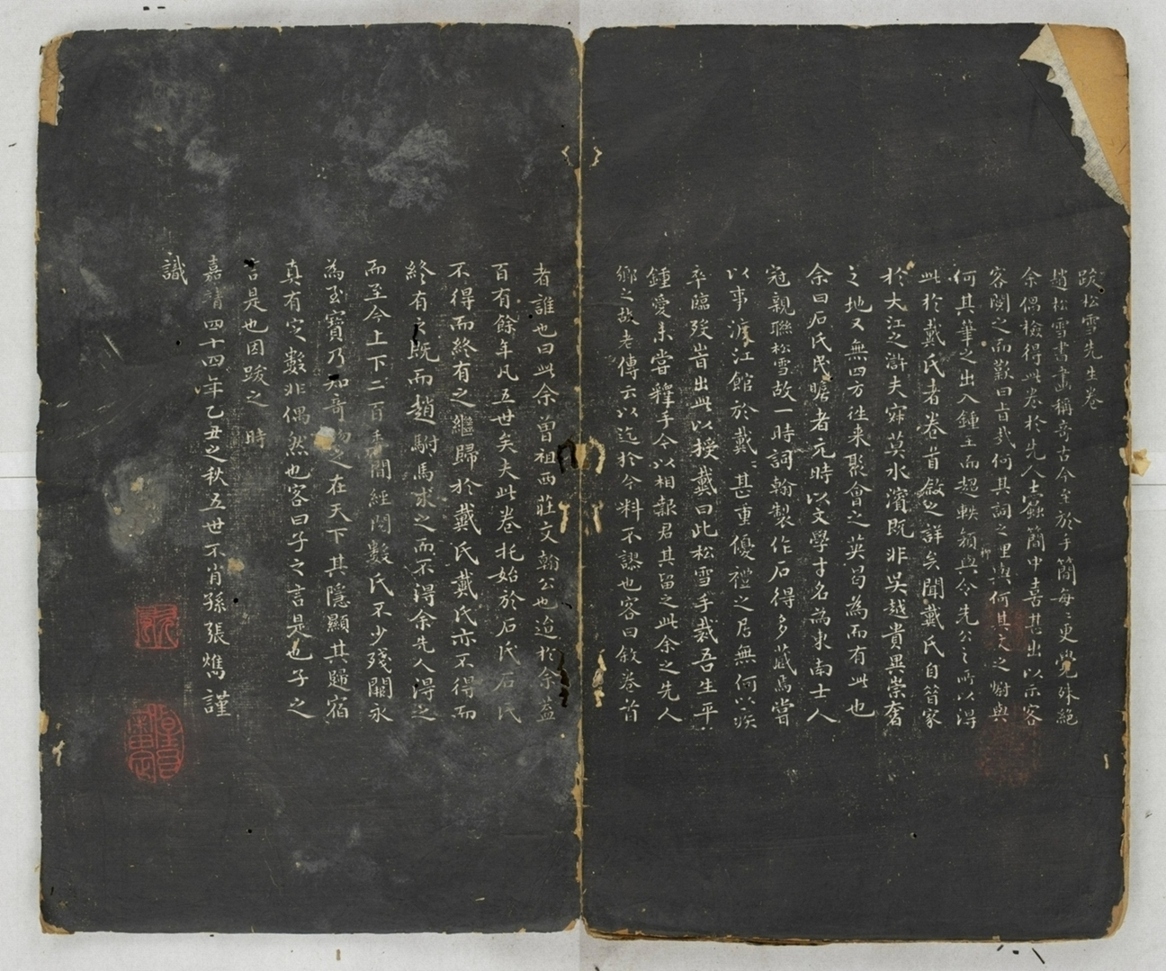 跋松雪先生卷
趙松雪書畫稱奇古今至於手簡每〻更覺殊絕
余偶檢得此卷於先人蠹簡中喜甚出以示客
客閱之而歎曰旨哉何其詞之理與何其文之樹與
何其筆之出入鍾王而超軼類與今先公之所以得
此於戴氏者卷首敘之詳矣聞戴氏自昔家
於大江之滸夫寂莫水濱既非吳越貴異崇奮
之地又無四方往來聚會之英曷為而有此也
余曰石氏民瞻者元時以文學才名為東南士人
冠親聯松雪故一時詞翰製作石得多藏焉嘗
以事渡江館於戴〻甚重優禮之居無何以疾
卒臨歿皆出此以授戴曰此松雪手裁吾生平
鍾愛未嘗釋手今以相報君其留之此余之先人
鄉之故老傳云以迄於今料不謬也客曰敘卷首
者誰也曰此余曾祖西莊文翰公也迨於余蓋
百有餘年凡五世矣夫此卷托始於石氏石氏
不得而終有之繼歸於戴氏戴氏亦不得而
終有之既而趙駙馬求之而不得余先人得之
而至今上下二百季間經閱數氏不少殘闕永
為至寶乃知奇物之在天下其隱顯其歸宿
真有定數非偶然也客曰子之言是也子之
言是也因跋之時
嘉靖四十四年乙丑之秋五世不肖孫張㒞謹
識